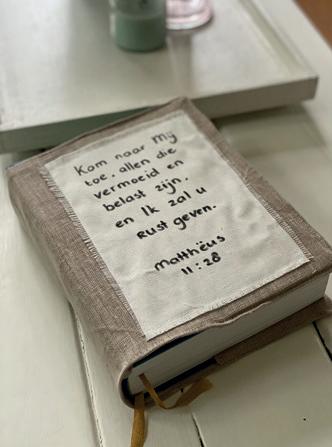 Kom naar Mij
toe, allen die
vermoeid en
belast zijn,
en Ik zal u
Rust geven.
Matthëüs
11:28